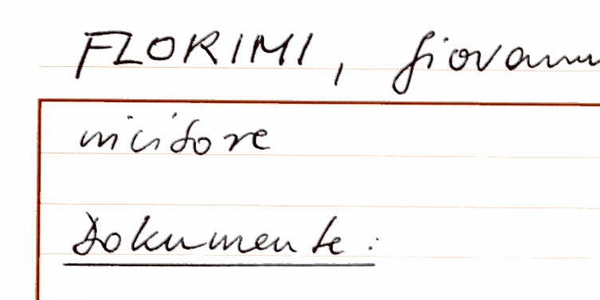 FLORIMI, Giovanni
incisore
Dokumente: